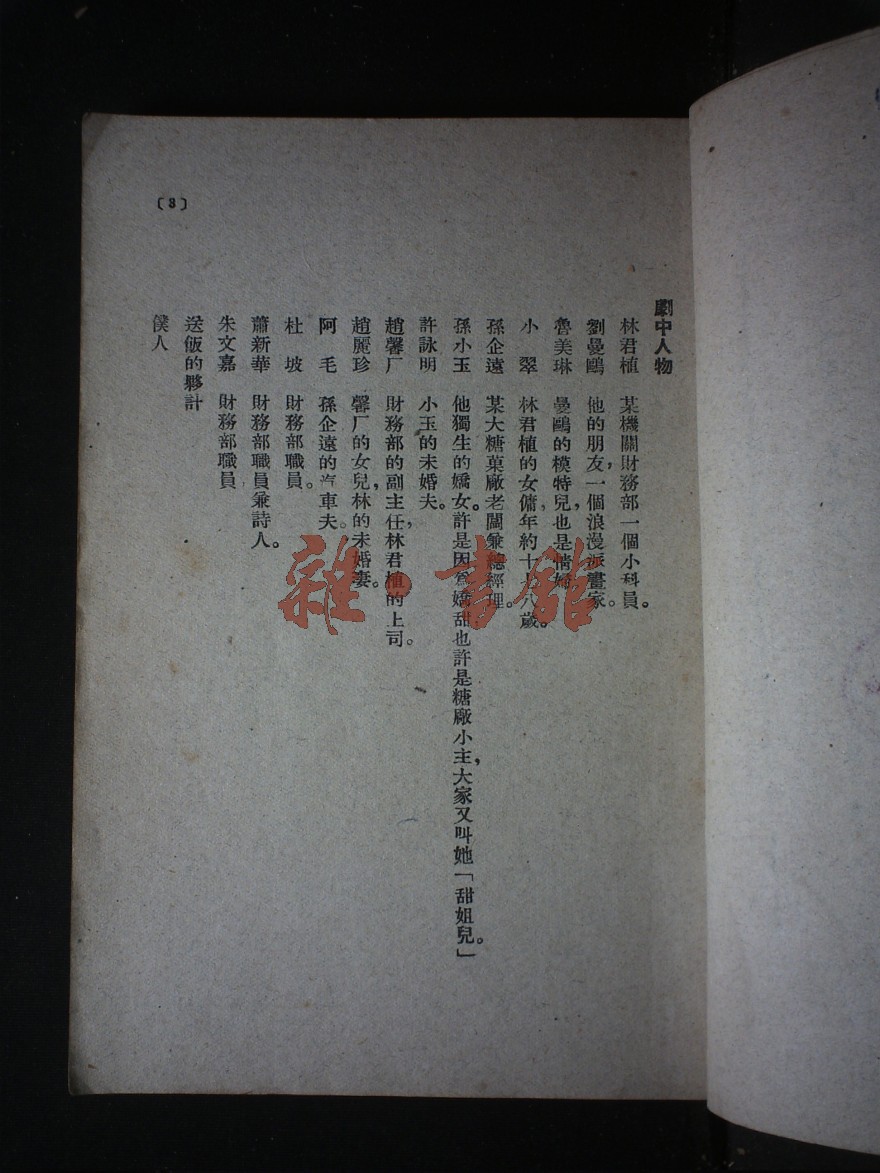 劇中人物
林君植　某機關財務部一個小科員。
劉曼鷗　他的朋友，一個浪漫派畫家。
魯美琳　曼鷗的模特兒，也是情婦。
小　翠　林君植的女傭，年約十七八歲。
孫企遠　某大糖菓廠老闆兼總經理。
孫小玉　他獨生的嬌女。許是因爲嬌甜，也許是糖廠小主，大家又叫她「甜姐兒。」
許詠明　小玉的未婚夫。
趙馨厂　財務部的副主任，林君植的上司。
趙麗珍　馨厂的女兒，林的未婚妻。
阿　毛　孫企遠的汽車夫。
杜　坡　財務部職員。
蕭新華　財務部職員兼詩人。
朱文嘉　財務部職員
送飯的夥計
僕人
〔3〕
雜·書館